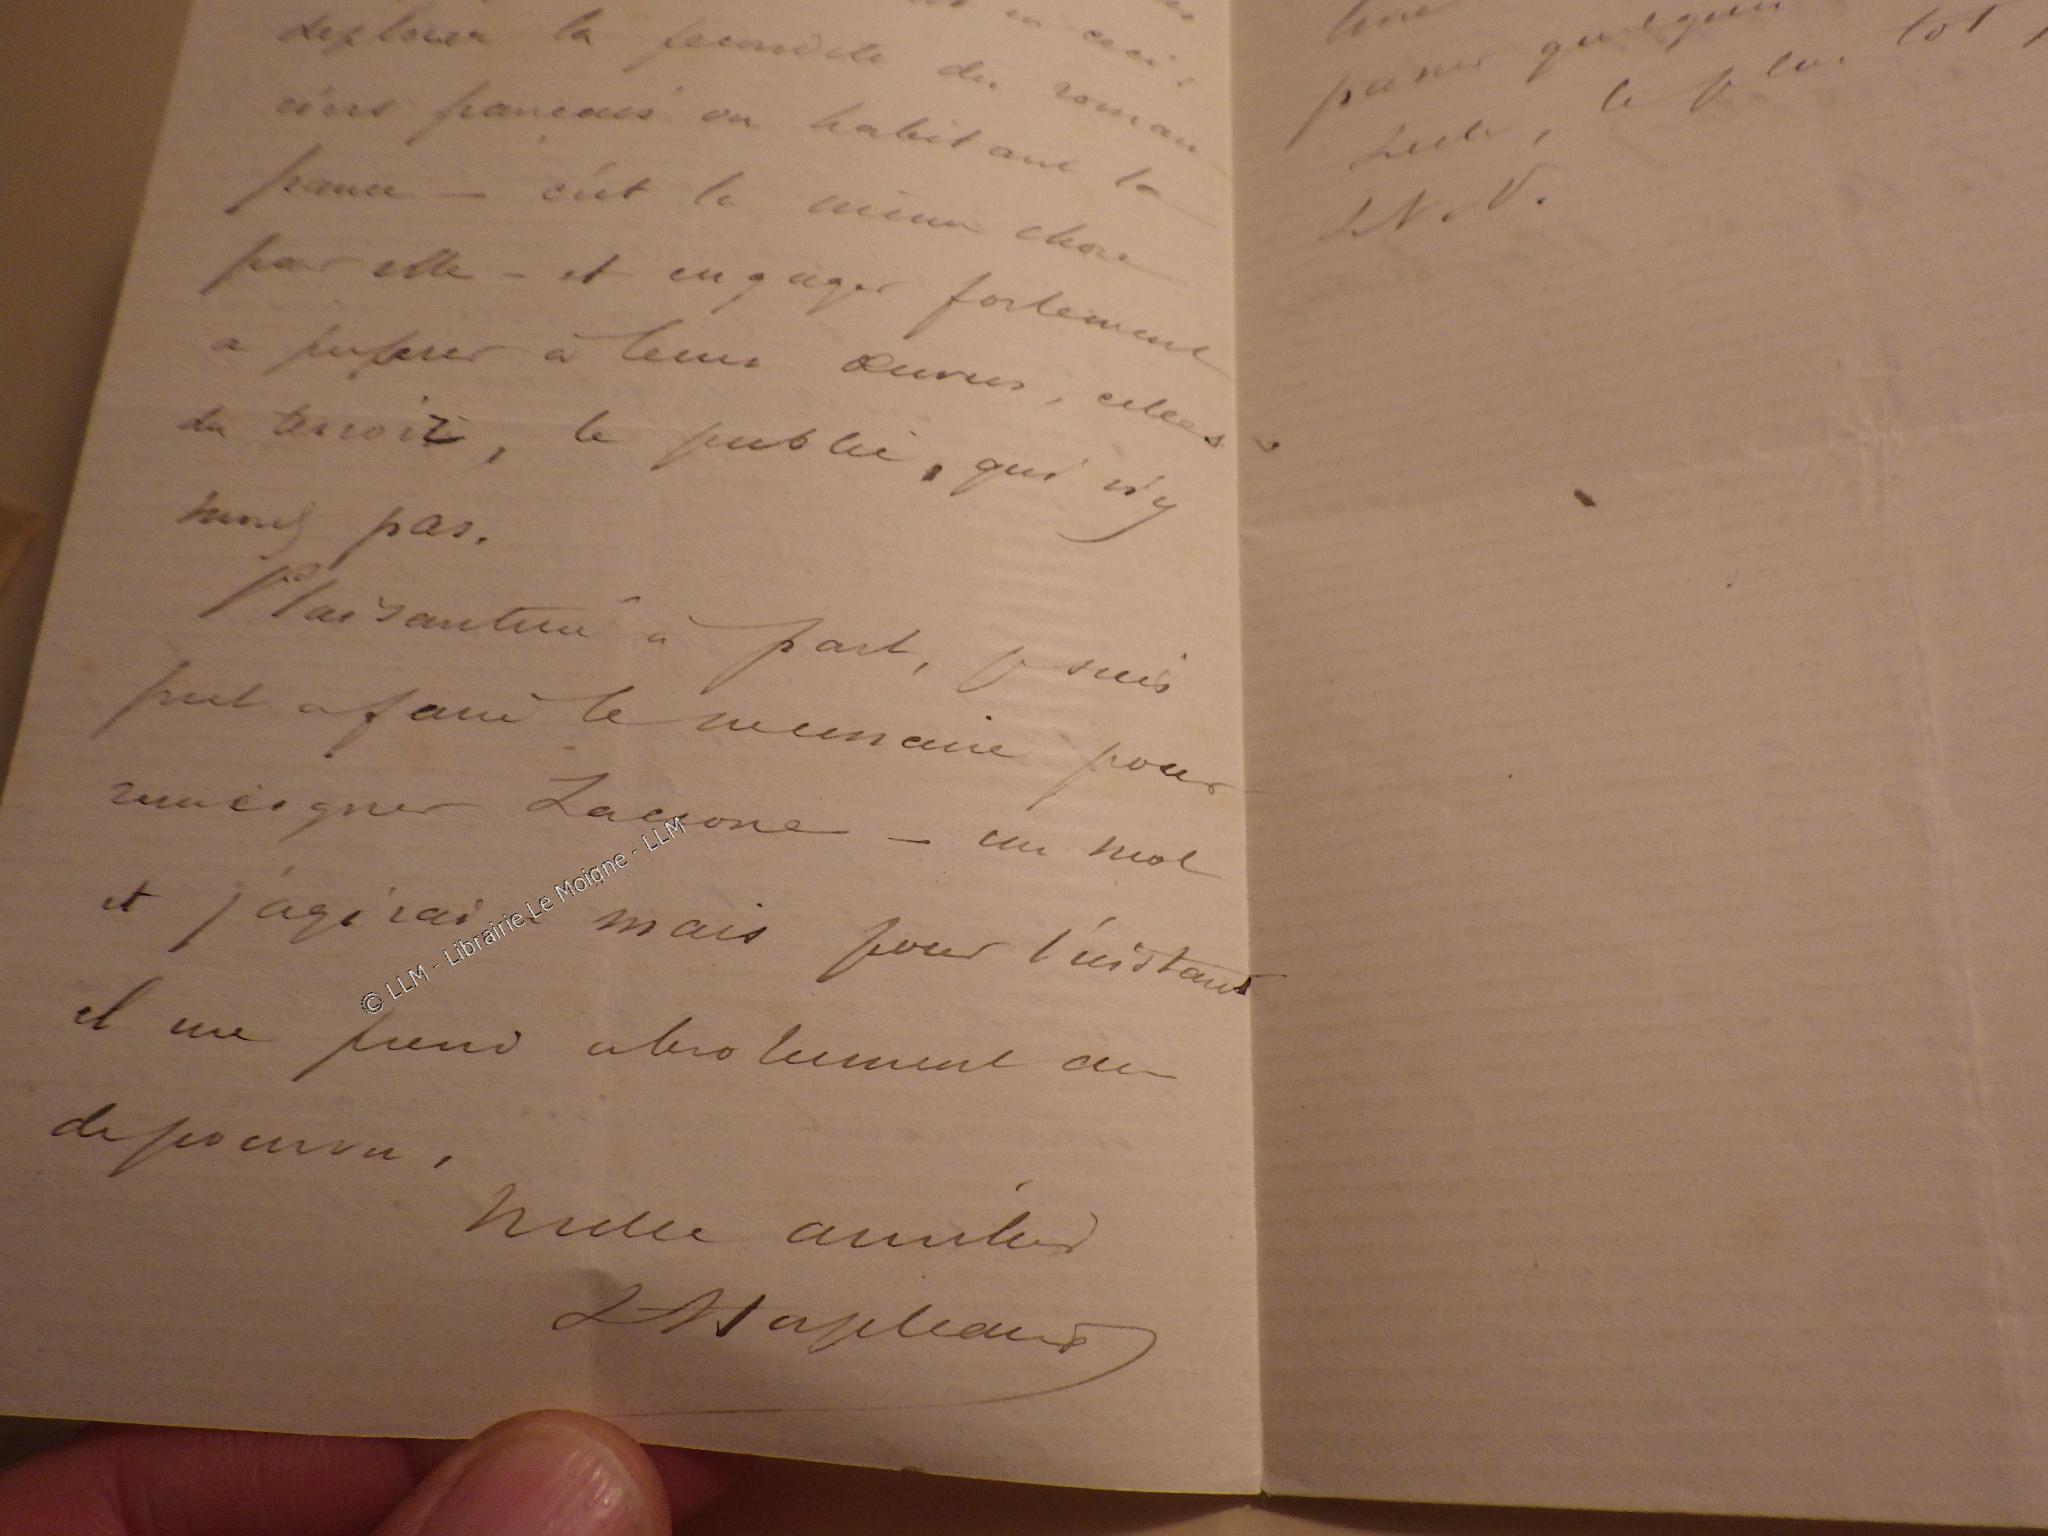 en ceci :
deplorer la fecondité des roman-
ciers français ou habitant la
france — c'est la même chose
pour elle — et engager fortement
a preferer à leurs œuvres, celles
du terroir, le public, qui n'y
mord pas.
Plaisanterie à part, je suis
pret a faire le necessaire pour
renseigner Lacrone — un mot
et j'agirai mais pour l'instant
il me prend absolument au
depourvu.
Mille amitiés
L Stapleaux
passer quelques
le plus tot
© LLM - Librairie Le Moigne - LLM